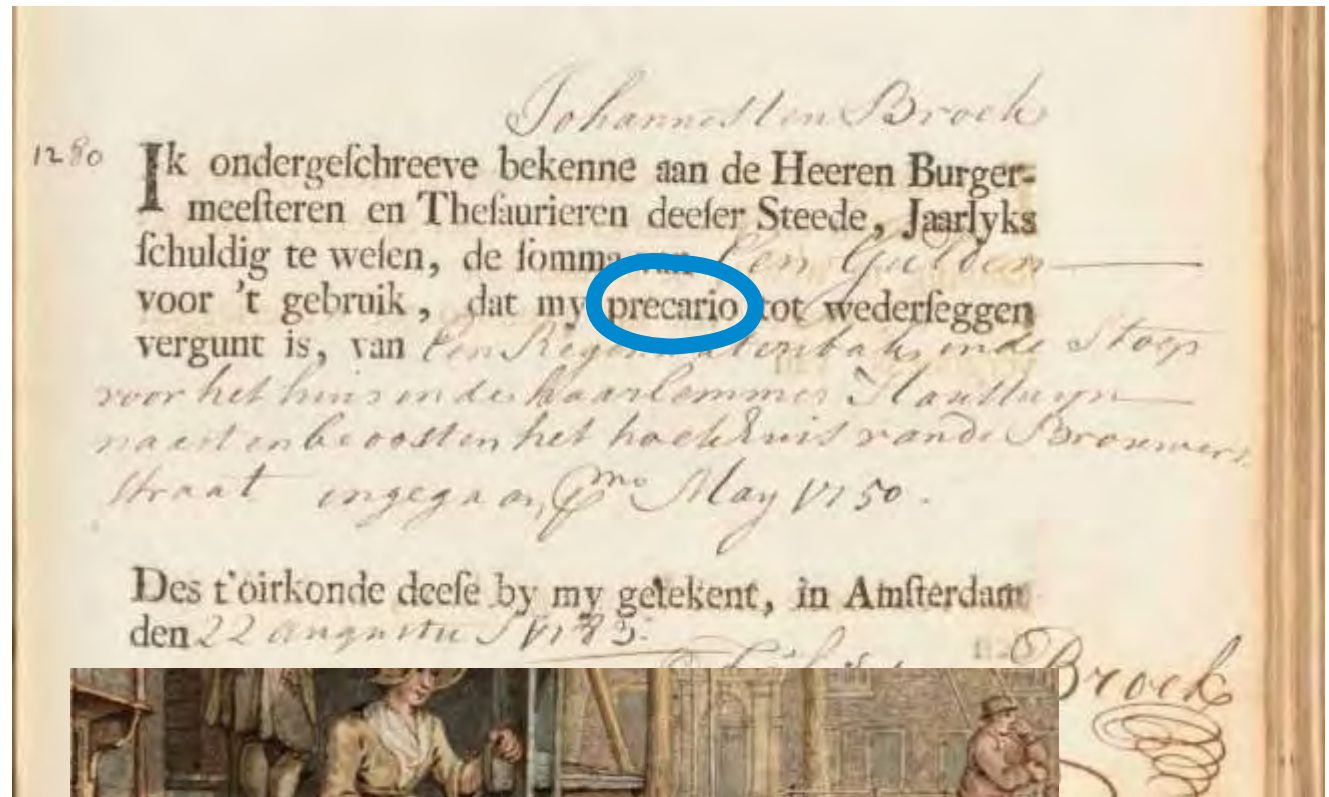 Johannes ten Broek
1280 Ik ondergeſchreeve bekenne aan de Heeren Burger-
meeſteren en Theſaurieren deeſer Steede, Jaarlyks
ſchuldig te weſen, de ſomma van Een Gulden
voor 't gebruik, dat my precario tot wederſeggen
vergunt is, van Een Regenwaterbak inde Stoep
voor het huis inde Haarlemmer Houttuyn
naast en beoosten het hoekhuis vande Brouwers
straat ingegaan Pmo May 1750.
Des t'oirkonde deeſe by my getekent, in Amſterdam
den 22 augustus
Broek